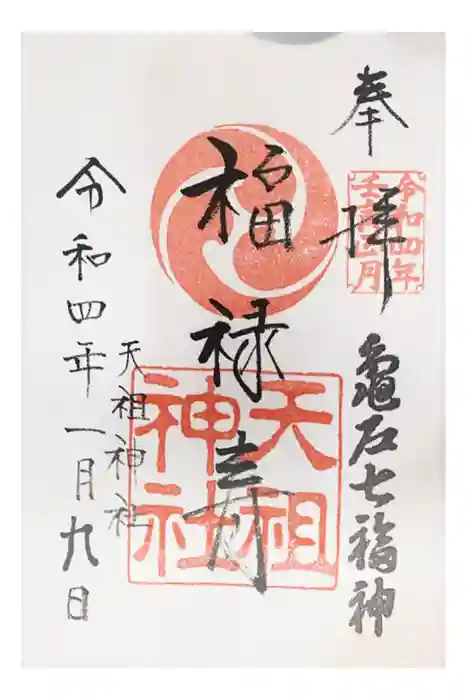 奉拝
令和四年
壬寅正月
龜戸七福神
福禄寿
天祖
神社
天祖神社
令和四年一月九日